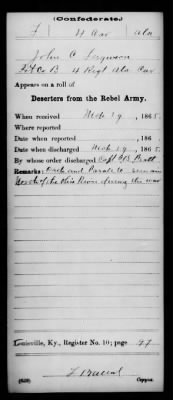 (Confederate.)
F 4 Cav Ala
John C Ferguson
Co B 4 Regt Ala Cav
Appears on a roll of
Deserters from the Rebel Army.
When received Mch 19, 1865.
Where reported
Date when reported , 186 .
Date when discharged Mch 19, 1865.
By whose order discharged Capt Pratt
Remarks: Oath and Parole to remain
North of the Ohio River during the war
Louisville, Ky., Register No. 10; page 47
(639) Copyist.